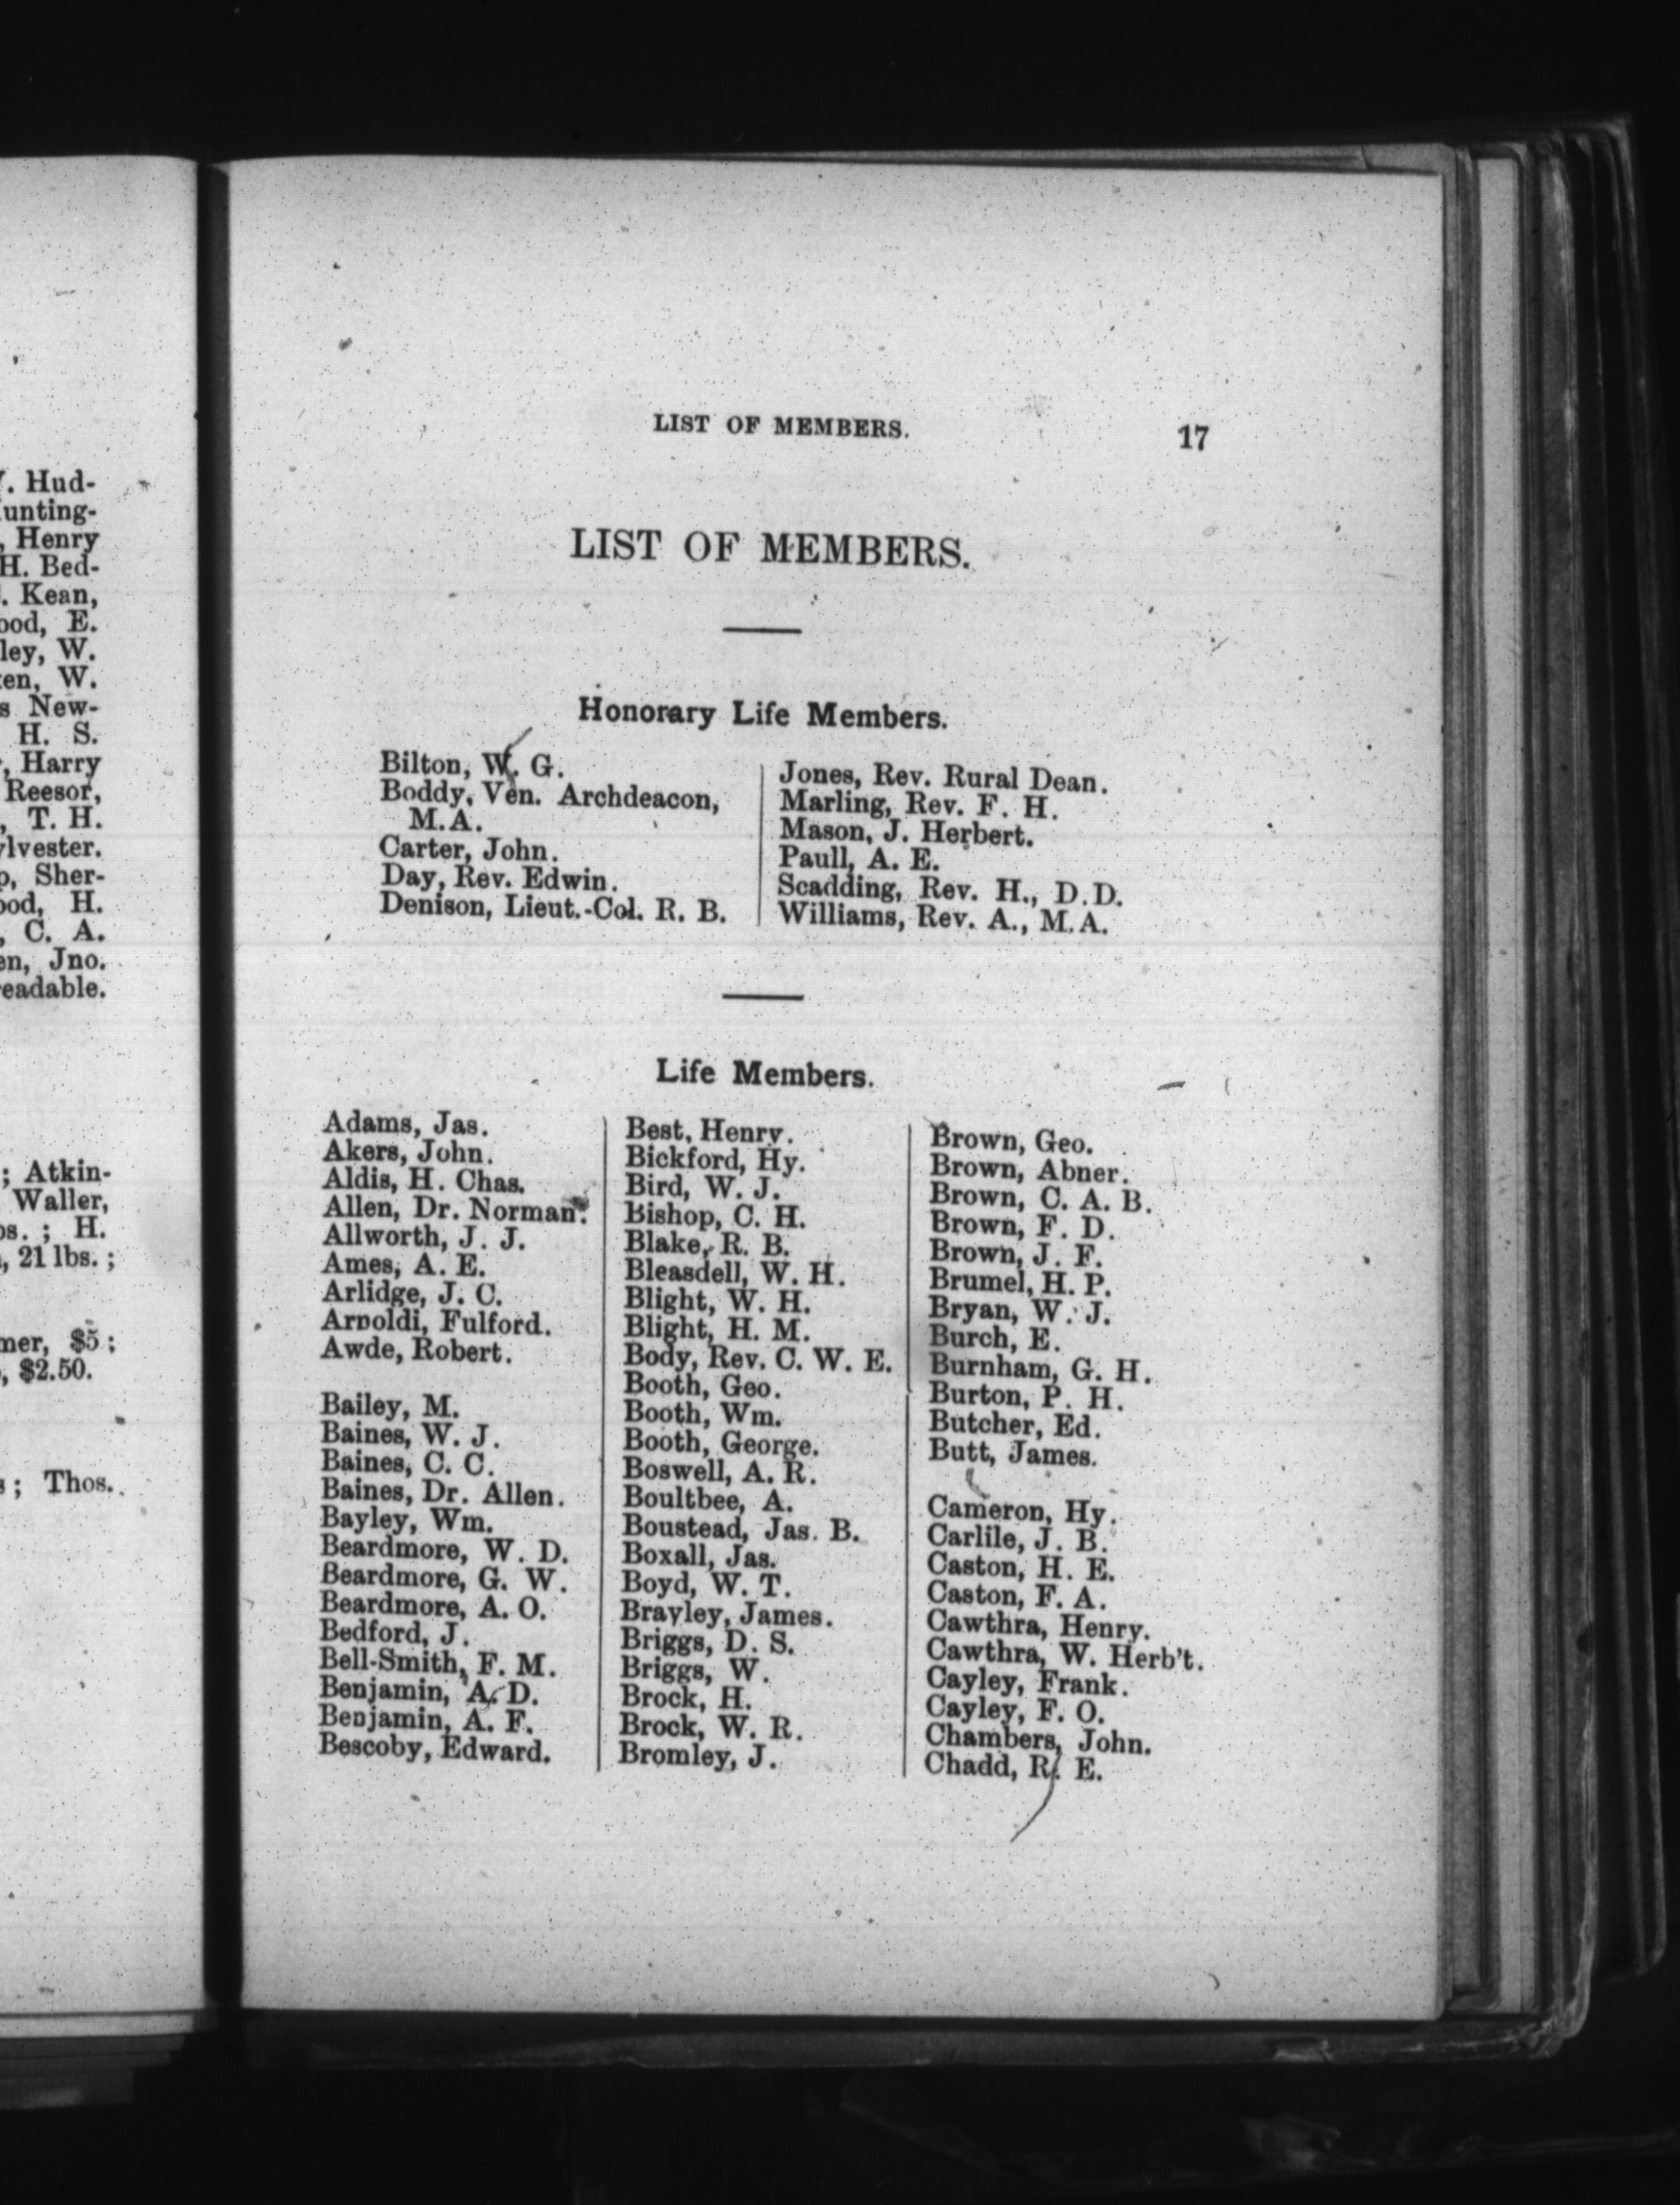 . Hud-
unting-
, Henry
H. Bed-
. Kean,
ood, E.
ley, W.
en, W.
s New-
H. S.
, Harry
Reesor,
, T. H.
ylvester.
p, Sher-
ood, H.
, C. A.
en, Jno.
readable.
; Atkin-
Waller,
bs. ; H.
, 21 lbs. ;
mer, $5 ;
, $2.50.
s ; Thos.
LIST OF MEMBERS. 17
LIST OF MEMBERS.
Honorary Life Members.
Bilton, W. G.
Boddy, Ven. Archdeacon,
M.A.
Carter, John.
Day, Rev. Edwin.
Denison, Lieut.-Col. R. B.
Jones, Rev. Rural Dean.
Marling, Rev. F. H.
Mason, J. Herbert.
Paull, A. E.
Scadding, Rev. H., D.D.
Williams, Rev. A., M.A.
Life Members.
Adams, Jas.
Akers, John.
Aldis, H. Chas.
Allen, Dr. Norman.
Allworth, J. J.
Ames, A. E.
Arlidge, J. C.
Arnoldi, Fulford.
Awde, Robert.
Bailey, M.
Baines, W. J.
Baines, C. C.
Baines, Dr. Allen.
Bayley, Wm.
Beardmore, W. D.
Beardmore, G. W.
Beardmore, A. O.
Bedford, J.
Bell-Smith, F. M.
Benjamin, A. D.
Benjamin, A. F.
Bescoby, Edward.
Best, Henry.
Bickford, Hy.
Bird, W. J.
Bishop, C. H.
Blake, R. B.
Bleasdell, W. H.
Blight, W. H.
Blight, H. M.
Body, Rev. C. W. E.
Booth, Geo.
Booth, Wm.
Booth, George.
Boswell, A. R.
Boultbee, A.
Boustead, Jas. B.
Boxall, Jas.
Boyd, W. T.
Brayley, James.
Briggs, D. S.
Briggs, W.
Brock, H.
Brock, W. R.
Bromley, J.
Brown, Geo.
Brown, Abner.
Brown, C. A. B.
Brown, F. D.
Brown, J. F.
Brumel, H. P.
Bryan, W. J.
Burch, E.
Burnham, G. H.
Burton, P. H.
Butcher, Ed.
Butt, James.
Cameron, Hy.
Carlile, J. B.
Caston, H. E.
Caston, F. A.
Cawthra, Henry.
Cawthra, W. Herb't.
Cayley, Frank.
Cayley, F. O.
Chambers, John.
Chadd, R. E.